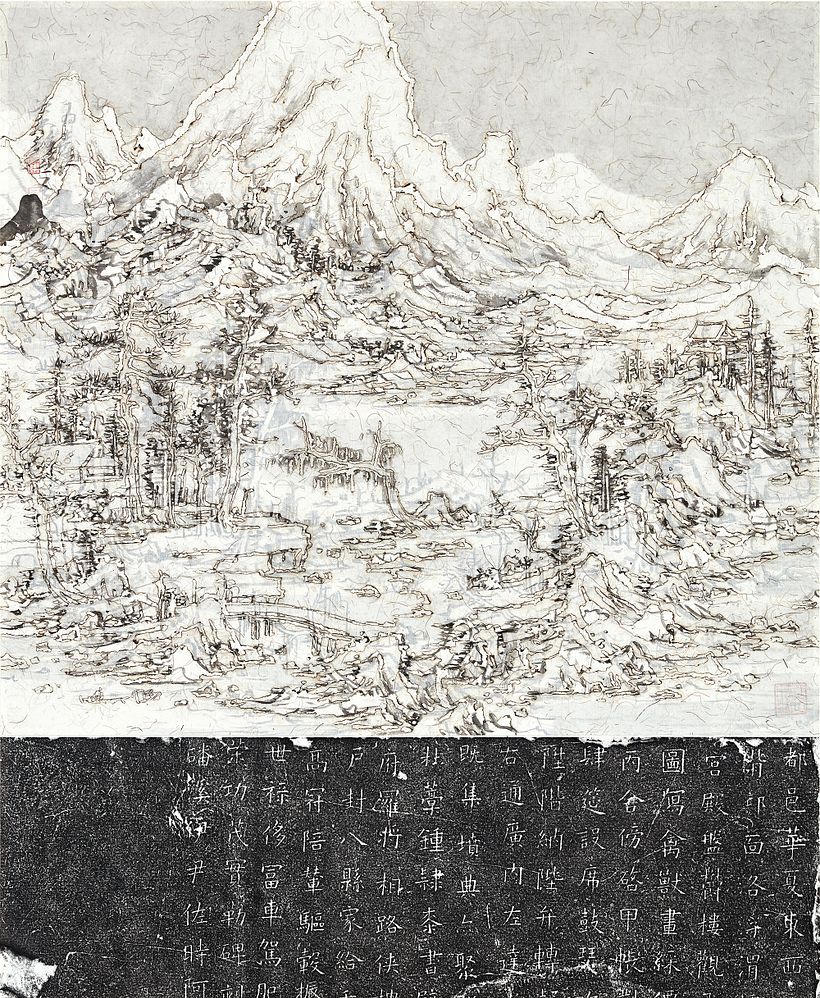 都邑華夏東西
背邙面洛浮渭
宮殿盤鬱樓觀
圖寫禽獸畫綵
丙舍傍啓甲帳
肆筵設席鼓瑟
陞階納陛弁轉疑
右通廣內左達
既集墳典亦聚
杜藁鍾隸漆書
府羅將相路俠槐
戶封八縣家給千
高冠陪輦驅轂振
世祿侈富車駕肥
策功茂實勒碑刻
磻溪伊尹佐時阿